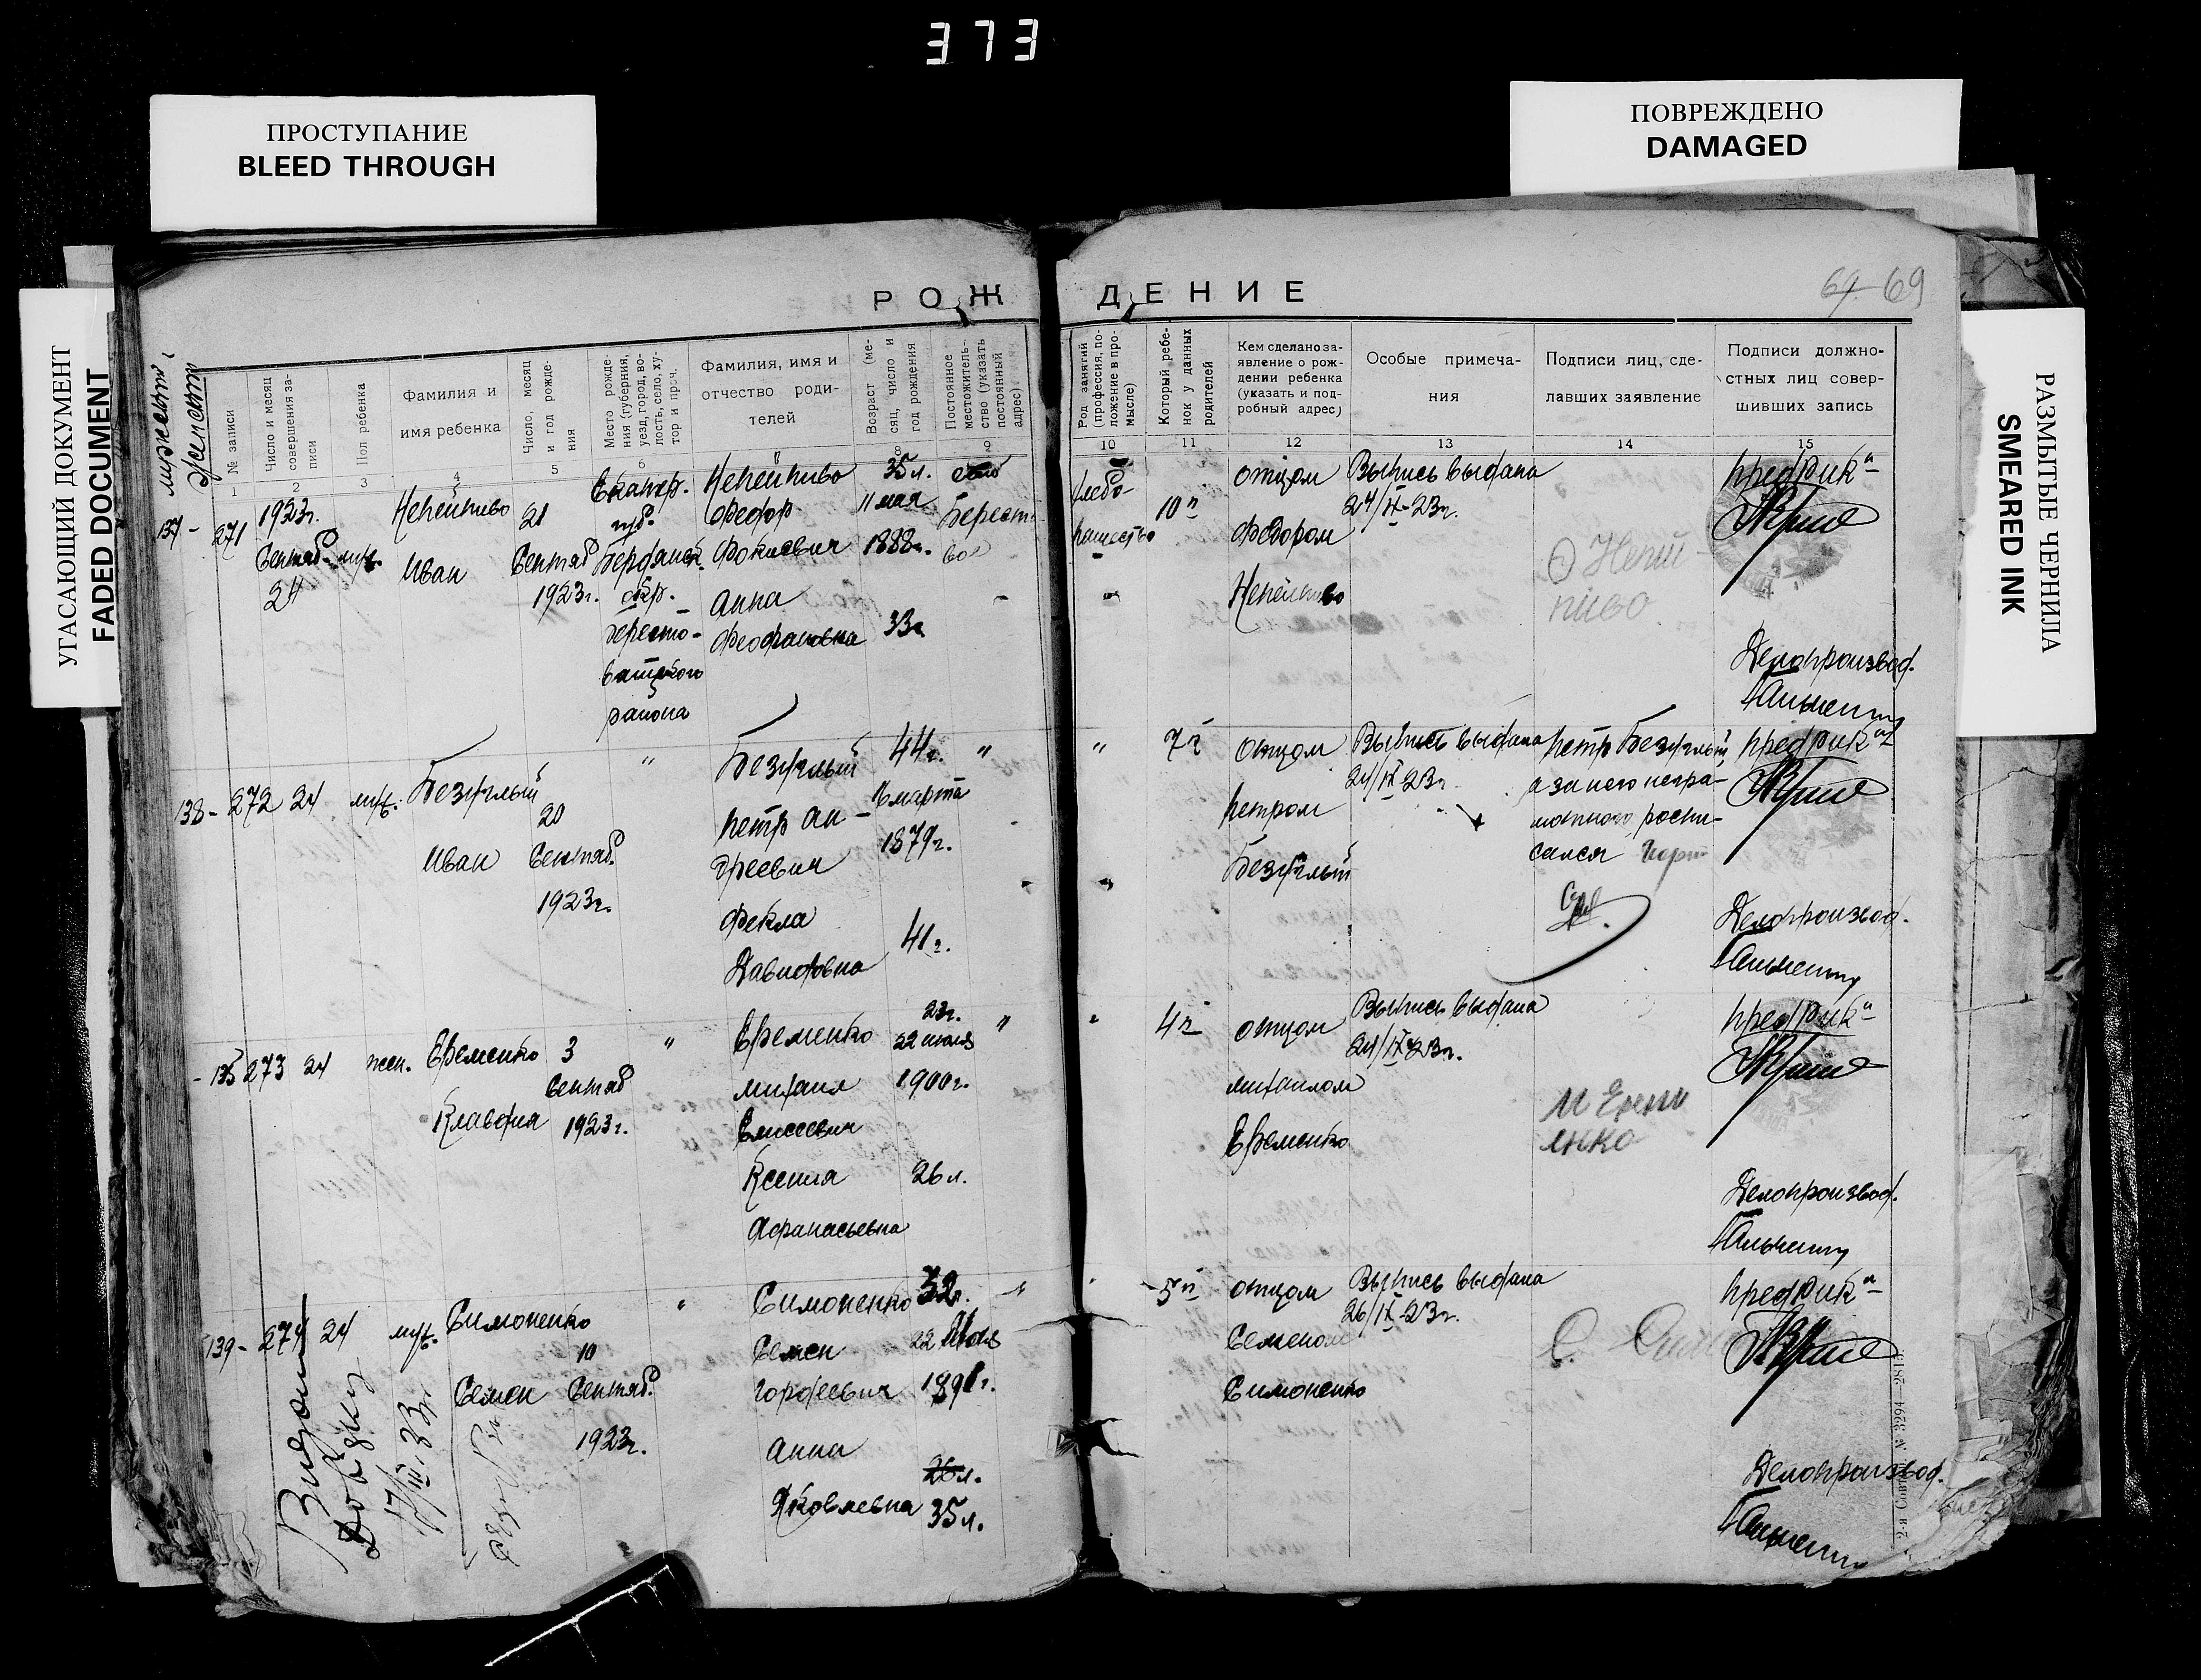 373
ПРОСТУПАНИЕ
BLEED THROUGH
ПОВРЕЖДЕНО
DAMAGED
УГАСАЮЩИЙ ДОКУМЕНТ
FADED DOCUMENT
РАЗМЫТЫЕ ЧЕРНИЛА
SMEARED INK
РОЖ ДЕНИЕ
69
№ записи
Число и месяц
совершения за-
писи
Пол ребенка
Фамилия и
имя ребенка
Число, месяц
и год рожде-
ния
Место рожде-
ния (губерния,
уезд, город, во-
лость, село, ху-
тор и проч.
Фамилия, имя и
отчество роди-
телей
Возраст (ме-
сяц, число и
год рождения
Постоянное
местожитель-
ство (указать
постоянный
адрес)
Род занятий
(профессия, по-
ложение в про-
мысле)
Который ребе-
нок у данных
родителей
Кем сделано за-
явление о рож-
дении ребенка
(указать и под-
робный адрес)
Особые примеча-
ния
Подписи лиц, сде-
лавших заявление
Подписи должно-
стных лиц совер-
шивших запись
1 2 3 4 5 6 7 8 9
10 11 12 13 14 15
137 -
271
1923г.
Сентяб
24
муж.
Непейпиво
Иван
21
Сентяб
1923г.
Екатер.
губ.
Бердянск.
окр.
Бересто-
ватского
района
Непейпиво
Федор
Фокиевич
Анна
Феофановна
35 л.
11 мая
1888г.
33г
Берест
вое
хлебо-
пашество
10й
отцом
Федором
Непейпиво
Выпись выдана
24/IX-23г.
О Непий
пиво
Предрика
Делопроизвод.
138 - 272 24 муж.
Безуглый
Иван
20
Сентяб.
1923г.
"
Безуглый
Петр Ан-
дреевич
Фекла
Давидовна
44г.
1879г.
41г.
"
"
7й
Отцом
Петром
Безуглый
Выпись выдана
24/IX-23г.
Петр Безуглый,
а за него негра-
мотного распи-
сался
Предрика
Делопроизвод.
273 24 жен.
Еременко
Клавдия
3
Сентяб
1923г.
"
Еременко
Михаил
Елисеевич
Ксения
Афанасьевна
23г.
1900г.
26 л.
"
4й
отцом
Михаилом
Еременко
Выпись выдана
24/IX-23г.
М Ереме
енко
Предрика
Делопроизвод.
139 - 274 24 муж.
Симоненко
Семен
10
Сентяб.
1923г.
"
Симоненко
Семен
Гордеевич
Анна
Яковлевна
32г.
26 л.
35 л.
5й
отцом
Семеном
Симоненко
Выпись выдана
26/IX-23г.
С.
Предрика
Делопроизвод.
17/III 33г